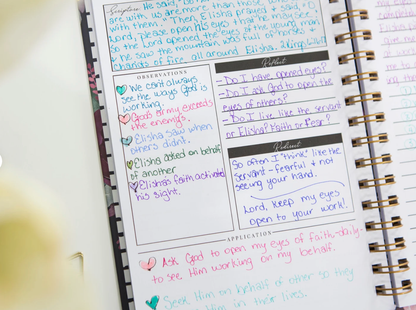 Scripture He said
are with us are more than those
with them". Then Elisha prayed & said, "O
Lord, please open his eyes that he may see."
So the Lord opened the eyes of the young man
& he saw the mountain was full of horses &
chariots of fire all around Elisha. 2 Kings
OBSERVATIONS
We can't always
see the ways God is
working.
God's army exceeds
the enemy's.
Elisha saw when
others didn't.
Elisha asked on behalf
of another
Elisha's faith activated
his sight.
Reflect
- Do I have opened eyes?
- Do I ask God to open the
eyes of others?
- Do I live like the servant
or Elisha? Faith or Fear?
So often I "think" like the
servant - fearful & not
seeing your hand.
Lord, keep my eyes
open to your work!
APPLICATION
Ask God to open my eyes of faith daily
to see Him working on my behalf.
Seek Him on behalf of other so they
Him in their lives.